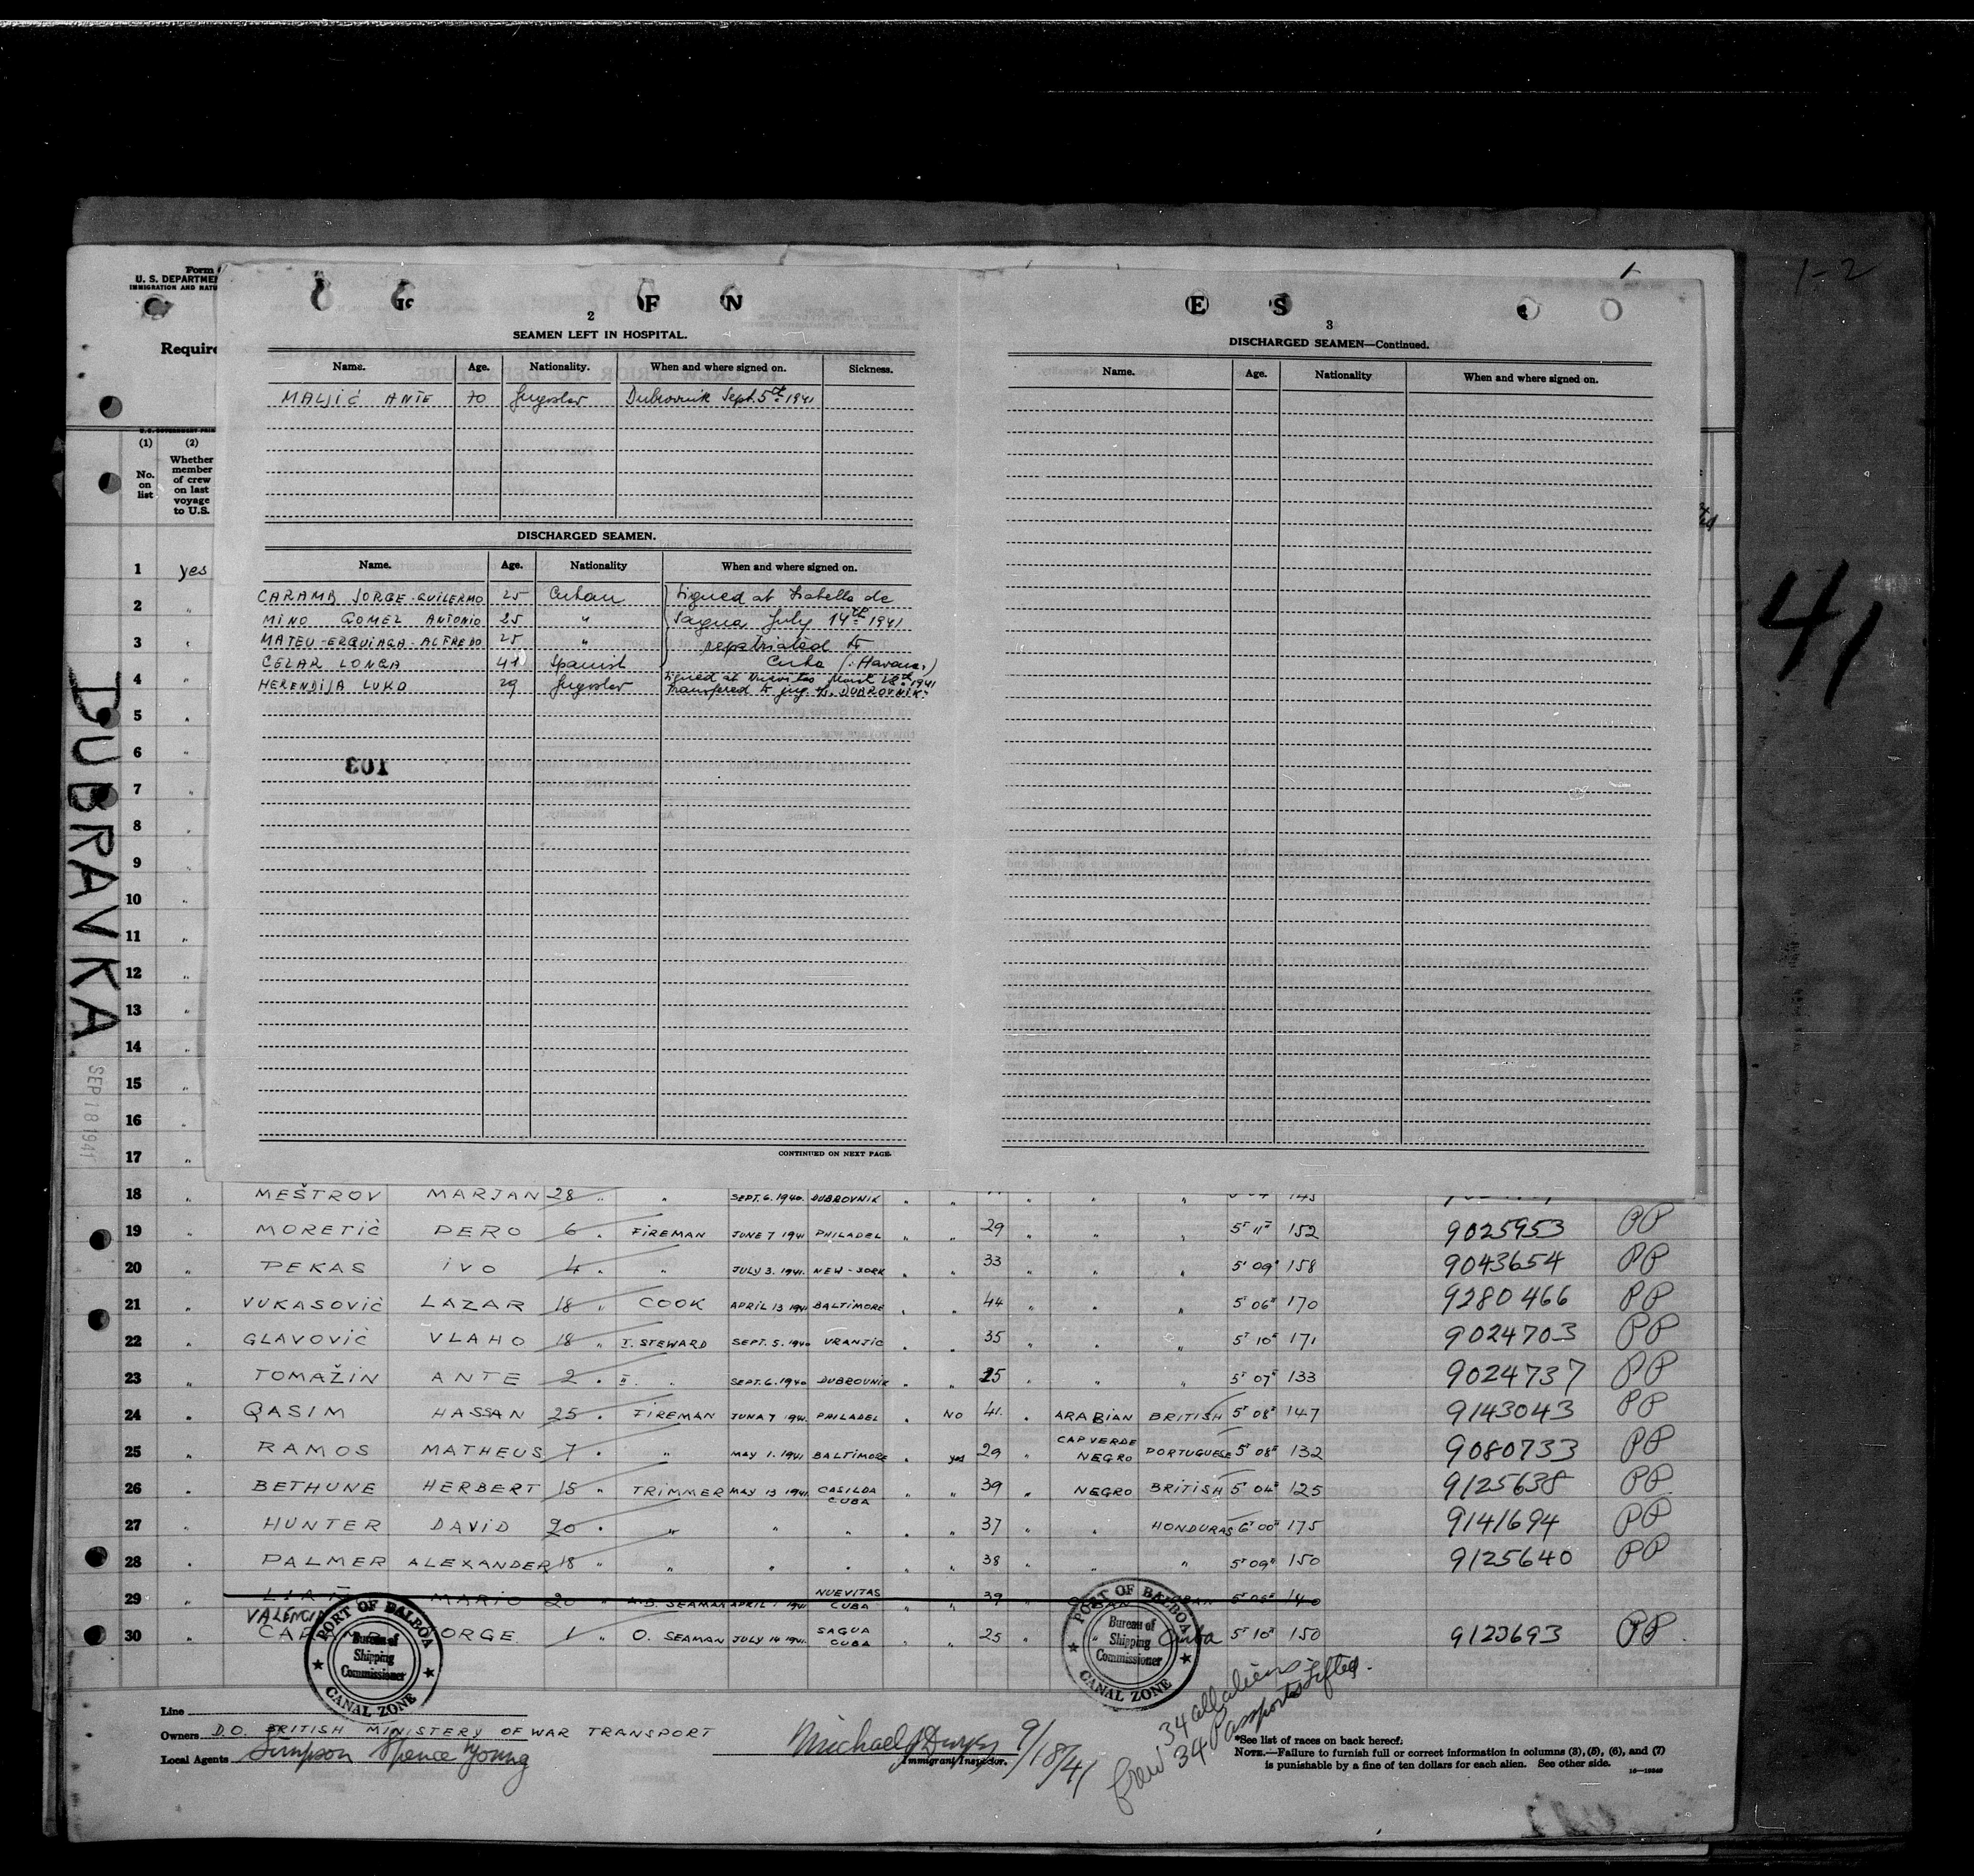 1-2
41
DUBRAVKA
SEP 18 1941
Form
U. S. DEPARTME
IMMIGRATION AND NATU
Require
(1) (2)
No. on list
Whether member of crew on last voyage to U.S.
1 yes
2 "
3 "
4 "
5 "
6 "
7 "
8 "
9 "
10 "
11 "
12 "
13 "
14 "
15 "
16 "
17 "
2
SEAMEN LEFT IN HOSPITAL.
Name. Age. Nationality. When and where signed on. Sickness.
MALJIĆ ANTE 70 Jugoslav Dubrovnik Sept. 5th 1941
DISCHARGED SEAMEN.
Name. Age. Nationality When and where signed on.
CARAMB JORGE-GUILERMO 25 Cuban Signed at Isabella de
MINO GOMEZ ANTONIO 25 " Sagua July 14th 1941
MATEU-ERQUIAGA-ALFREDO 25 " repatriated to
CELAR LONGA 41 Spanish Cuba (Havana)
HERENDIJA LUKO 29 Jugoslav Signed at Nuevitas March 28th 1941
transfered to jug. s. DUBROVNIK.
103
CONTINUED ON NEXT PAGE.
3
DISCHARGED SEAMEN—Continued.
Name. Age. Nationality When and where signed on.
18 " MEŠTROV MARJAN 28 " " SEPT. 6. 1940. DUBROVNIK " " " " "
19 " MORETIĆ PERO 6 " FIREMAN JUNE 7 1941 PHILADEL " " 29 " " " 5' 11" 152 9025953 PP
20 " PEKAS IVO 4 " " JULY 3. 1941. NEW-JORK " " 33 " " " 5' 09" 158 9043654 PP
21 " VUKASOVIĆ LAZAR 18 " COOK APRIL 13 1941 BALTIMORE " " 44 " " " 5' 06" 170 9280466 PP
22 " GLAVOVIĆ VLAHO 18 " I. STEWARD SEPT. 5. 1940 VRANJIC " " 35 " " " 5' 10" 171 9024703 PP
23 " TOMAŽIN ANTE 2 " II. " SEPT. 6. 1940 DUBROVNIK " " 25 " " " 5' 07" 133 9024737 PP
24 " QASIM HASSAN 25 " FIREMAN JUNA 7 1941. PHILADEL " NO 41. " ARABIAN BRITISH 5' 08" 147 9143043 PP
25 " RAMOS MATHEUS 7 " " MAY 1. 1941 BALTIMORE " yes 29 " CAP VERDE NEGRO PORTUGUESE 5' 08" 132 9080733 PP
26 " BETHUNE HERBERT 15 " TRIMMER MAY 13 1941. CASILDA CUBA " " 39 " NEGRO BRITISH 5' 04" 125 9125638 PP
27 " HUNTER DAVID 20 " " " " " " 37 " " HONDURAS 6' 00" 175 9141694 PP
28 " PALMER ALEXANDER 18 " " " " " " 38 " " " 5' 09" 150 9125640 PP
29 " MARIO 20 " A.B. SEAMAN APRIL 1 1941 NUEVITAS CUBA " " 39 "
VALENCIA
30 " 1 " O. SEAMAN JULY 14 1941. SAGUA CUBA " " 25 " " Cuba 5' 10" 150 9123693 PP
PORT OF BALBOA
Bureau of Shipping Commissioner
CANAL ZONE
PORT OF BALBOA
Bureau of Shipping Commissioner
CANAL ZONE
Line
Owners D.O. BRITISH MINISTERY OF WAR TRANSPORT
Local Agents Simpson Spence Young
Immigrant Inspector.
9/18/41
Crew 34 all aliens
34 Passports Lifted.
*See list of races on back hereof.
NOTE.—Failure to furnish full or correct information in columns (3), (5), (6), and (7)
is punishable by a fine of ten dollars for each alien. See other side.